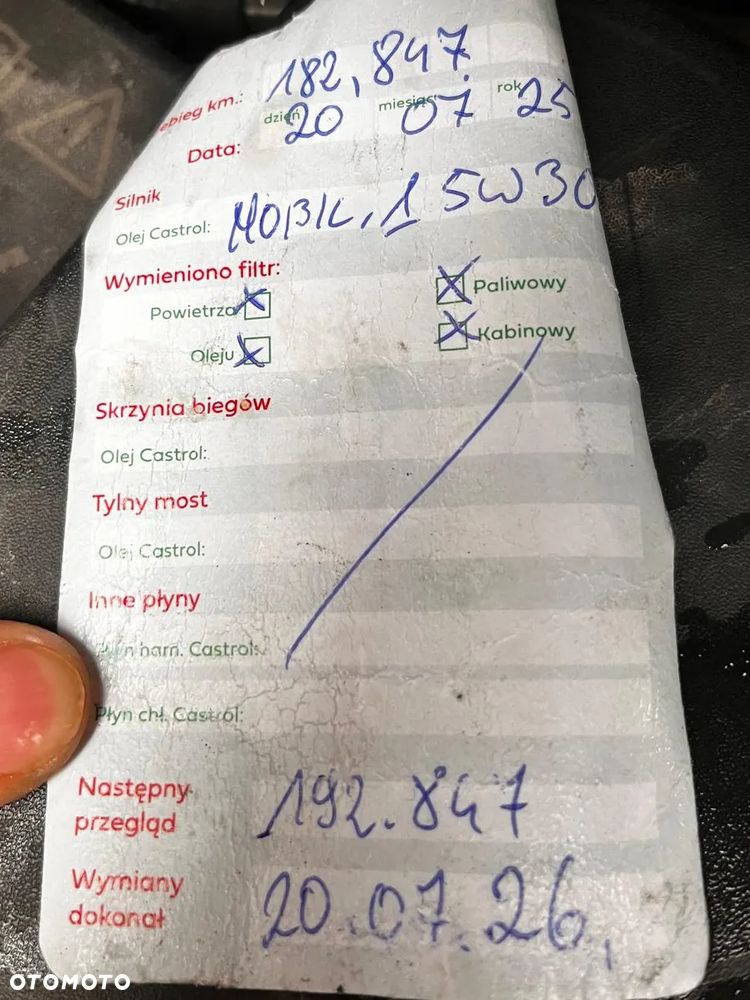 ebieg km.: 182,847
Data: dzień 20 miesiąc 07 rok 25
Silnik
Olej Castrol: MOBIL, 1 5W30
Wymieniono filtr:
Powietrza x Paliwowy x
Oleju x Kabinowy x
Skrzynia biegów
Olej Castrol:
Tylny most
Olej Castrol:
Inne płyny
Płyn ham. Castrol:
Płyn chł. Castrol:
Następny 192.847
przegląd
Wymiany 20.07.26,
dokonał
OTOMOTO